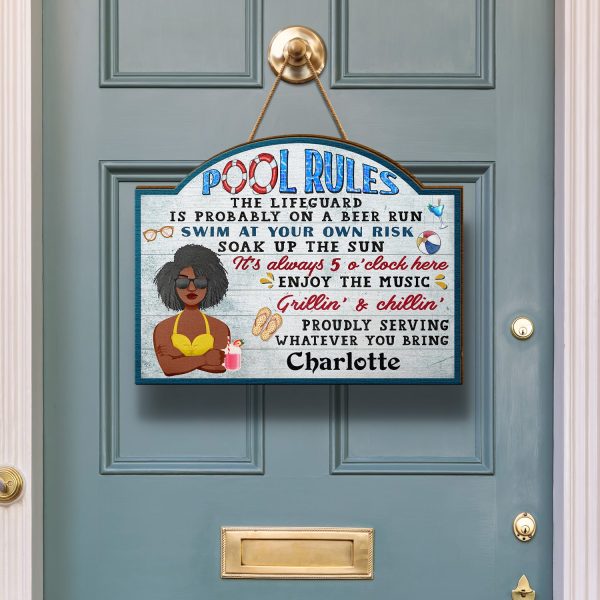 POOL RULES
THE LIFEGUARD
IS PROBABLY ON A BEER RUN
SWIM AT YOUR OWN RISK
SOAK UP THE SUN
It's always 5 o'clock here
ENJOY THE MUSIC
Grillin' & chillin'
PROUDLY SERVING
WHATEVER YOU BRING
Charlotte